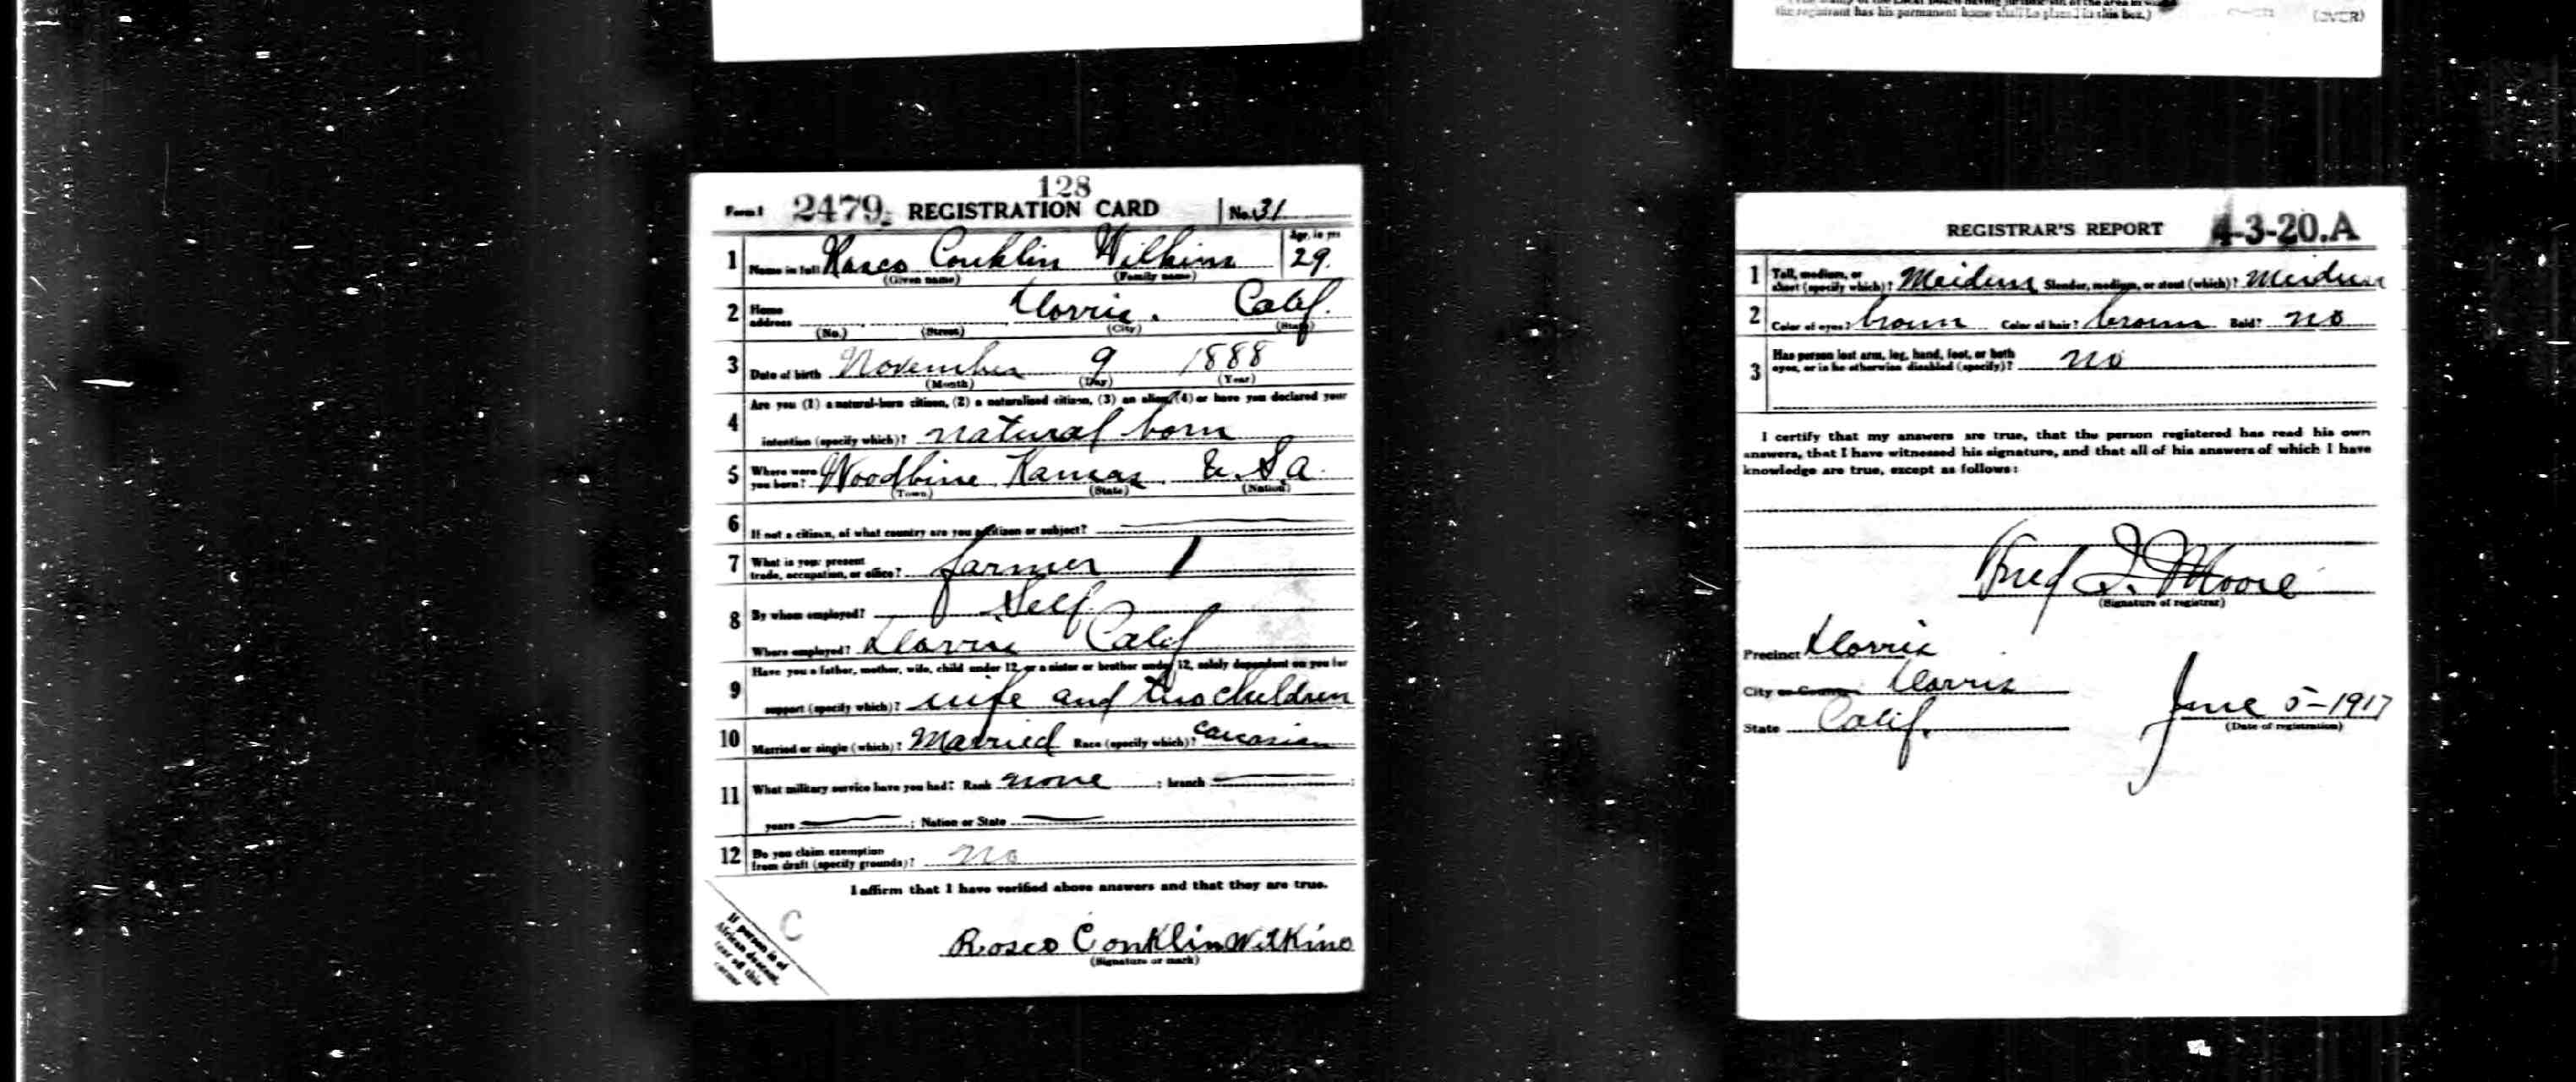 the registrant has his permanent home shall be placed in this box.) (OVER)
128
Form 1 2479 REGISTRATION CARD No. 31
1 Name in full Rosco Conklin Wilkins Age, in yrs 29.
(Given name) (Family name)
2 Home address Dorris. Calif.
(No.) (Street) (City) (State)
3 Date of birth November 9 1888
(Month) (Day) (Year)
4 Are you (1) a natural-born citizen, (2) a naturalized citizen, (3) an alien, (4) or have you declared your
intention (specify which)? natural born
5 Where were you born? Woodbine Kansas U.S.A.
(Town) (State) (Nation)
6 If not a citizen, of what country are you a citizen or subject?
7 What is your present trade, occupation, or office? farmer
8 By whom employed? Self
Where employed? Dorris Calif
9 Have you a father, mother, wife, child under 12, or a sister or brother under 12, solely dependent on you for
support (specify which)? wife and two children
10 Married or single (which)? Married Race (specify which)? Caucasian
11 What military service have you had? Rank none ; branch ;
years ; Nation or State
12 Do you claim exemption from draft (specify grounds)? No
I affirm that I have verified above answers and that they are true.
C
If person is of
African descent,
tear off this
corner
Rosco Conklin Wilkins
(Signature or mark)
REGISTRAR'S REPORT 4-3-20.A
1 Tall, medium, or short (specify which)? Meidum Slender, medium, or stout (which)? Meidum
2 Color of eyes? brown Color of hair? brown Bald? no
3 Has person lost arm, leg, hand, foot, or both
eyes, or is he otherwise disabled (specify)? no
I certify that my answers are true, that the person registered has read his own
answers, that I have witnessed his signature, and that all of his answers of which I have
knowledge are true, except as follows:
Moore
(Signature of registrar)
Precinct Dorris
City or County Dorris
State Calif.
June 5-1917
(Date of registration)